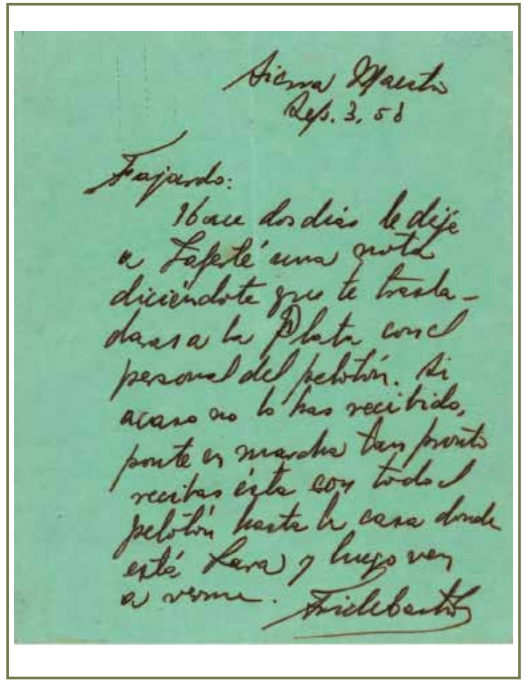 Sierra Maestra
Sep. 3, 58
Fajardo:
Hace dos días le dije
a Laferté una nota
diciéndote que te trasla-
daras a la Plata con el
personal del pelotón. Si
acaso no lo has recibido,
ponte en marcha tan pronto
recibas ésta con todo el
pelotón hasta la casa donde
está Lara y luego ven
a verme. Fidel Castro